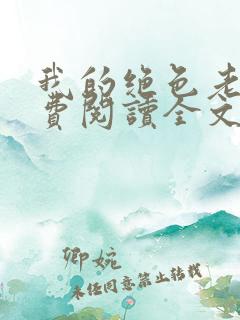 我的绝色老
費閱讀全文
卿婉
未经同意禁止转载